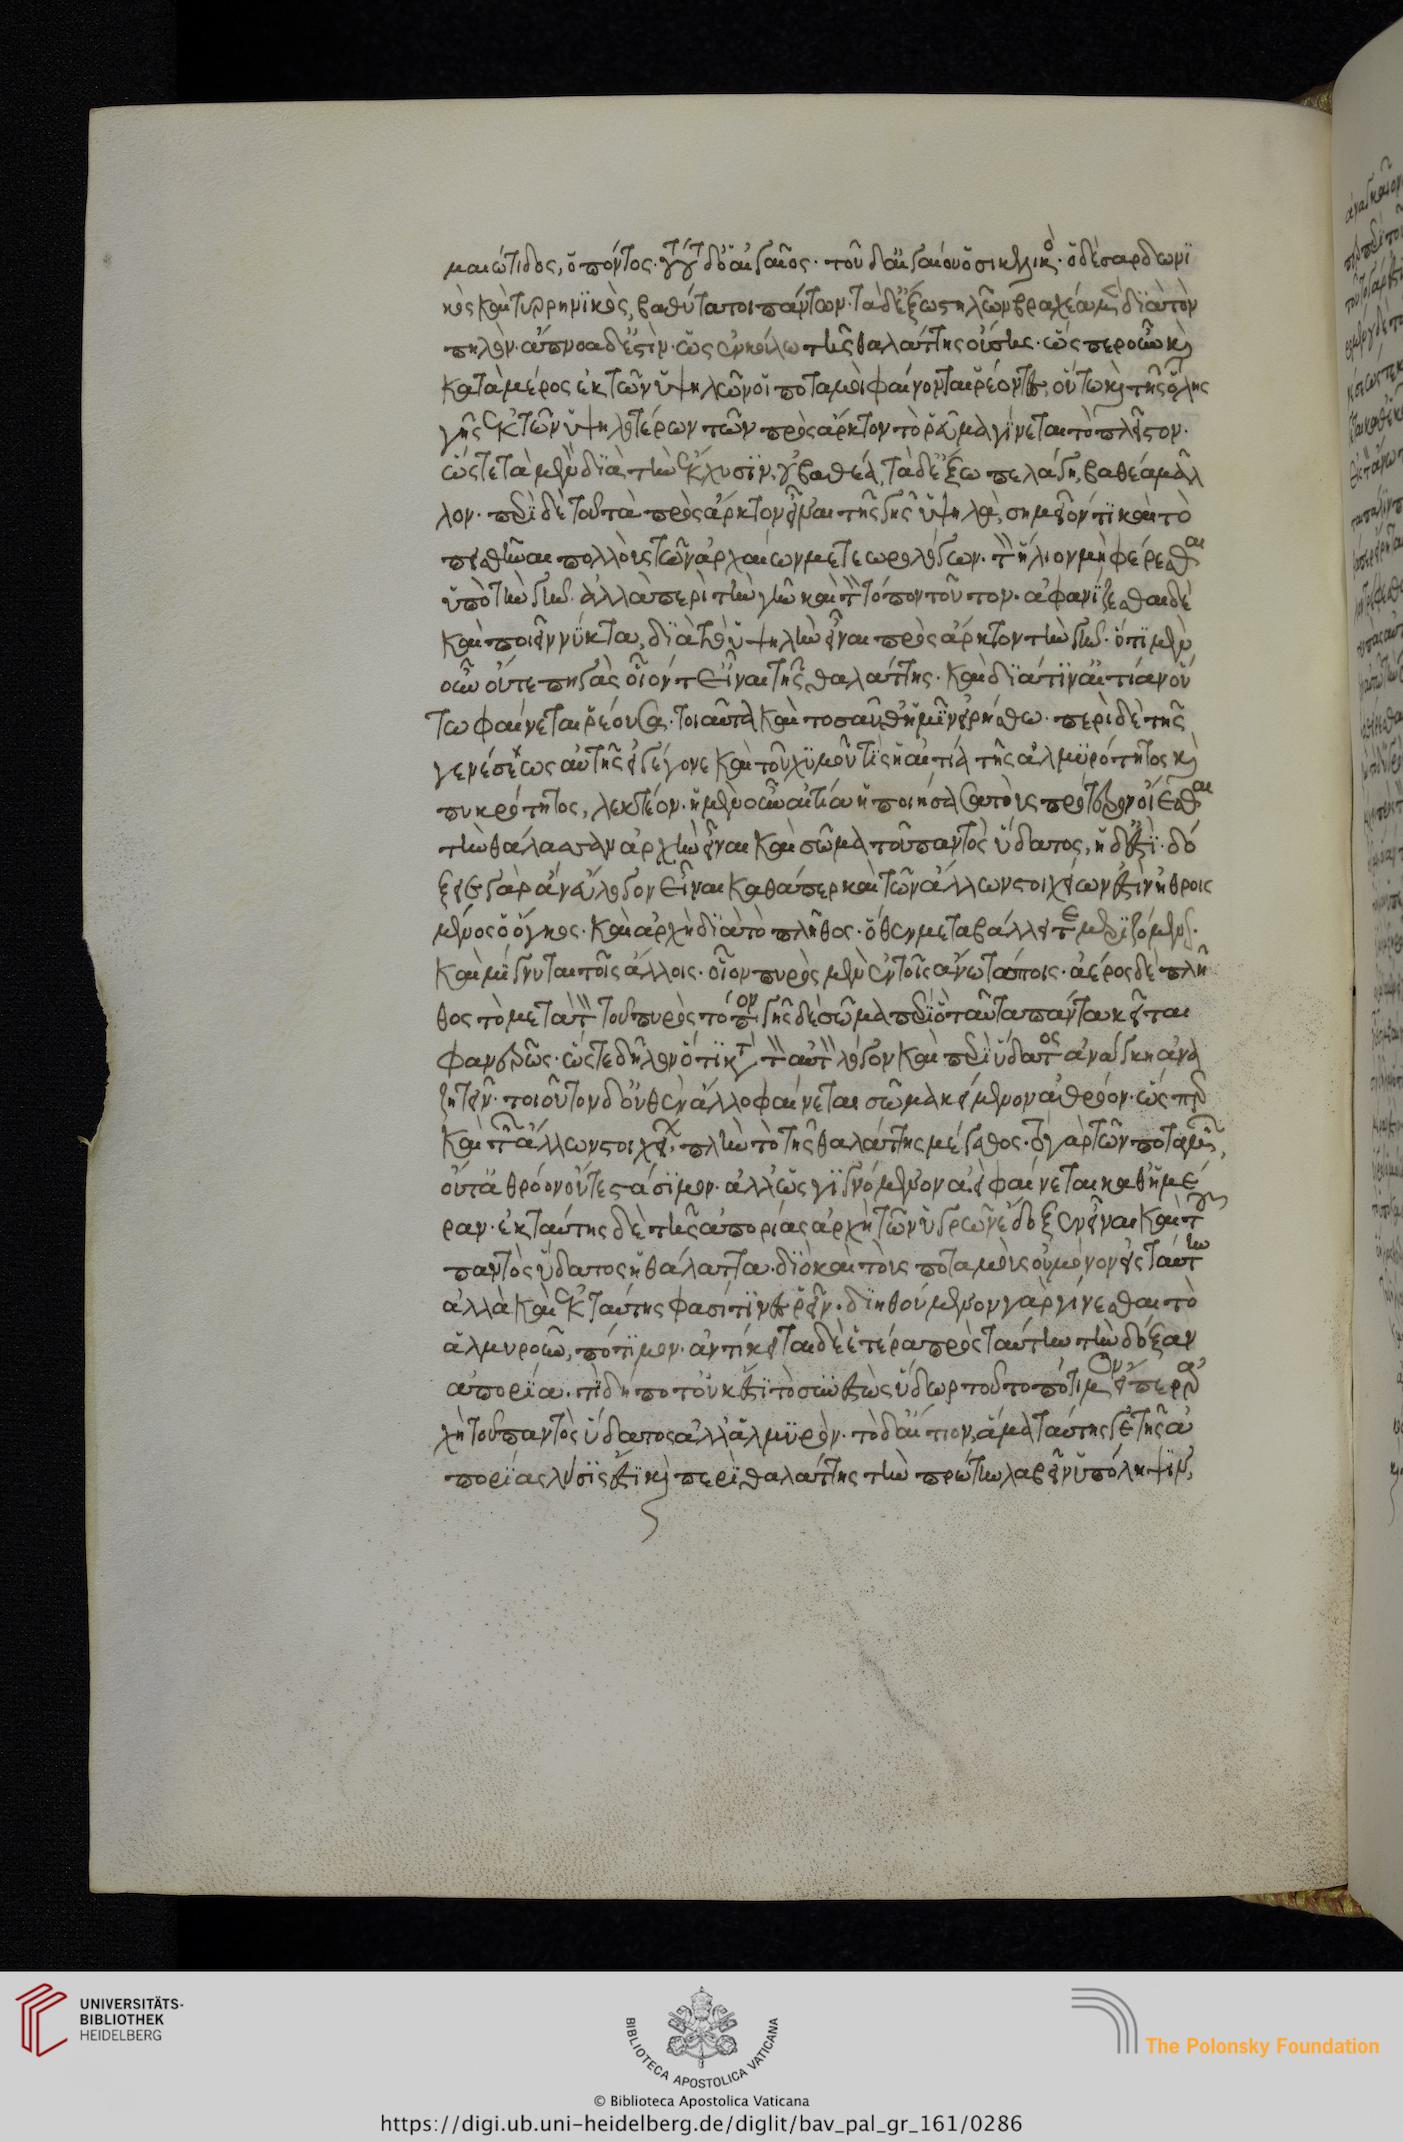 μαιώτιδος, ὁ πόντος. τούτου δ' ὁ αἰγαῖος. τοῦ δ' αἰγαίου ὁ σικελικὸς. ὁ δὲ σαρδωνι
κὸς καὶ τυρρηνικὸς, βαθύτατοι πάντων. τὰ δ' ἔξω στηλῶν βραχέα μὲν διὰ τὸν
πηλὸν. ἄπνοα δ' ἐστὶν. ὡς ἐν κοίλω τῆς θαλάττης οὔσης. ὥσπερ οὖν καὶ
κατὰ μέρος ἐκ τῶν ὑψηλῶν οἱ ποταμοὶ φαίνονται ῥέοντες, οὕτω καὶ τῆς ὅλης
γῆς ἐκ τῶν ὑψηλοτέρων τῶν πρὸς ἄρκτον τὸ ῥεῦμα γίνεται τὸ πλεῖστον.
ὥστε τὰ μὲν διὰ τὴν ἔκχυσιν, οὐ βαθέα, τὰ δ' ἔξω πελάγη, βαθέα μᾶλ
λον. περὶ δὲ τοῦ τὰ πρὸς ἄρκτον εἶναι τῆς γῆς ὑψηλὰ, σημεῖόν τι καὶ τὸ
πεισθῆναι πολλοὺς τῶν ἀρχαίων μετεωρολόγων. τὸν ἥλιον μὴ φέρεσθαι
ὑπὸ γῆν. ἀλλὰ περὶ τὴν γῆν καὶ τὸν τόπον τοῦτον. ἀφανίζεσθαι δὲ
καὶ ποιεῖν νύκτα, διὰ τὸ ὑψηλὴν εἶναι πρὸς ἄρκτον τὴν γῆν. ὅτι μὲν
οὖν οὔτε πηγὰς οἷόν τ' εἶναι τῆς θαλάττης. καὶ διὰ τίν' αἰτίαν οὕ
τω φαίνεται ῥέουσα. τοιαῦτα καὶ τοσαῦθ' ἡμῖν εἰρήσθω. περὶ δὲ τῆς
γενέσεως αὐτῆς εἰ γέγονε καὶ τοῦ χυμοῦ τίς ἡ αἰτία τῆς ἁλμυρότητος καὶ
πικρότητος, λεκτέον. ἡ μὲν οὖν αἰτία ἡ ποιήσασα τοὺς πρότερον οἴεσθαι
τὴν θάλατταν ἀρχὴν εἶναι καὶ σῶμα τοῦ παντὸς ὕδατος, ἥδ' ἐστὶ. δό
ξειε γὰρ ἂν εὔλογον εἶναι καθάπερ καὶ τῶν ἄλλων στοιχείων ἐστὶν ἠθροισ
μένος ὁ ὄγκος. καὶ ἀρχὴ διὰ τὸ πλῆθος. ὅθεν μεταβάλλει τε μεριζόμενον.
καὶ μίγνυται τοῖς ἄλλοις. οἷον πυρὸς μὲν ἐν τοῖς ἄνω τόποις. ἀέρος δὲ πλῆ
θος τὸ μετὰ τὸν τοῦ πυρὸς τόπον. γῆς δὲ σῶμα περὶ ὃ ταῦτα πάντα κεῖται
φανερῶς. ὥστε δῆλον ὅτι κατὰ τὸν αὐτὸν λόγον καὶ περὶ ὕδατος ἀνάγκη ἀνα
ζητεῖν. τοιοῦτον δ' οὐθὲν ἄλλο φαίνεται σῶμα κείμενον ἀθρόον. ὥσπερ
καὶ τῶν ἄλλων στοιχείων. πλὴν τὸ τῆς θαλάττης μέγεθος. τὸ γὰρ τῶν ποταμῶν,
οὔτ' ἀθρόον οὔτε στάσιμον. ἀλλ' ὡς γιγνόμενον ἀεὶ φαίνεται καθ' ἡμέ
ραν. ἐκ ταύτης δὲ τῆς ἀπορίας ἀρχὴ τῶν ὑγρῶν ἔδοξεν εἶναι καὶ τοῦ
παντὸς ὕδατος ἡ θάλαττα. διὸ καὶ τοὺς ποταμοὺς οὐ μόνον εἰς ταύτην
ἀλλὰ καὶ ἐκ ταύτης φασί τινες ῥεῖν. διηθούμενον γὰρ γίνεσθαι τὸ
ἁλμυρὸν, πότιμον. ἀντίκειται δὲ ἑτέρα πρὸς ταύτην τὴν δόξαν
ἀπορία. τί δή ποτ' οὐκ ἔστι τὸ συνεστὼς ὕδωρ τοῦτο πότιμον εἴπερ ἀρ
χὴ τοῦ παντὸς ὕδατος ἀλλ' ἁλμυρὸν. τὸ δ' αἴτιον, ἅμα ταύτης τε τῆς ἀ
πορίας λύσις ἐστὶ καὶ περὶ θαλάττης τὴν πρώτην λαβεῖν ὑπόληψιν,
UNIVERSITÄTS-
BIBLIOTHEK
HEIDELBERG
BIBLIOTECA APOSTOLICA VATICANA
The Polonsky Foundation
© Biblioteca Apostolica Vaticana
https://digi.ub.uni-heidelberg.de/diglit/bav_pal_gr_161/0286